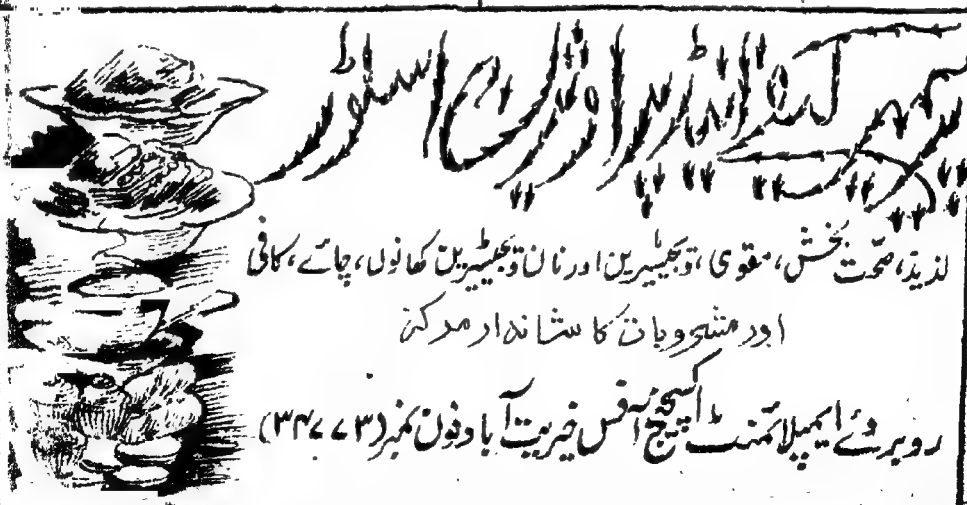 میکدہ اینڈ پراوژن اسٹور
لذیذ، صحّت بخش، مقوی، ویجیٹیرین اور نان ویجیٹیرین کھانوں، چائے، کافی
اور مشروبات کا شاندار مرکز
روبروئے ایمپلائمنٹ اکسچینج آفس خیریت آباد فون نمبر (۳۴۷۷۳)